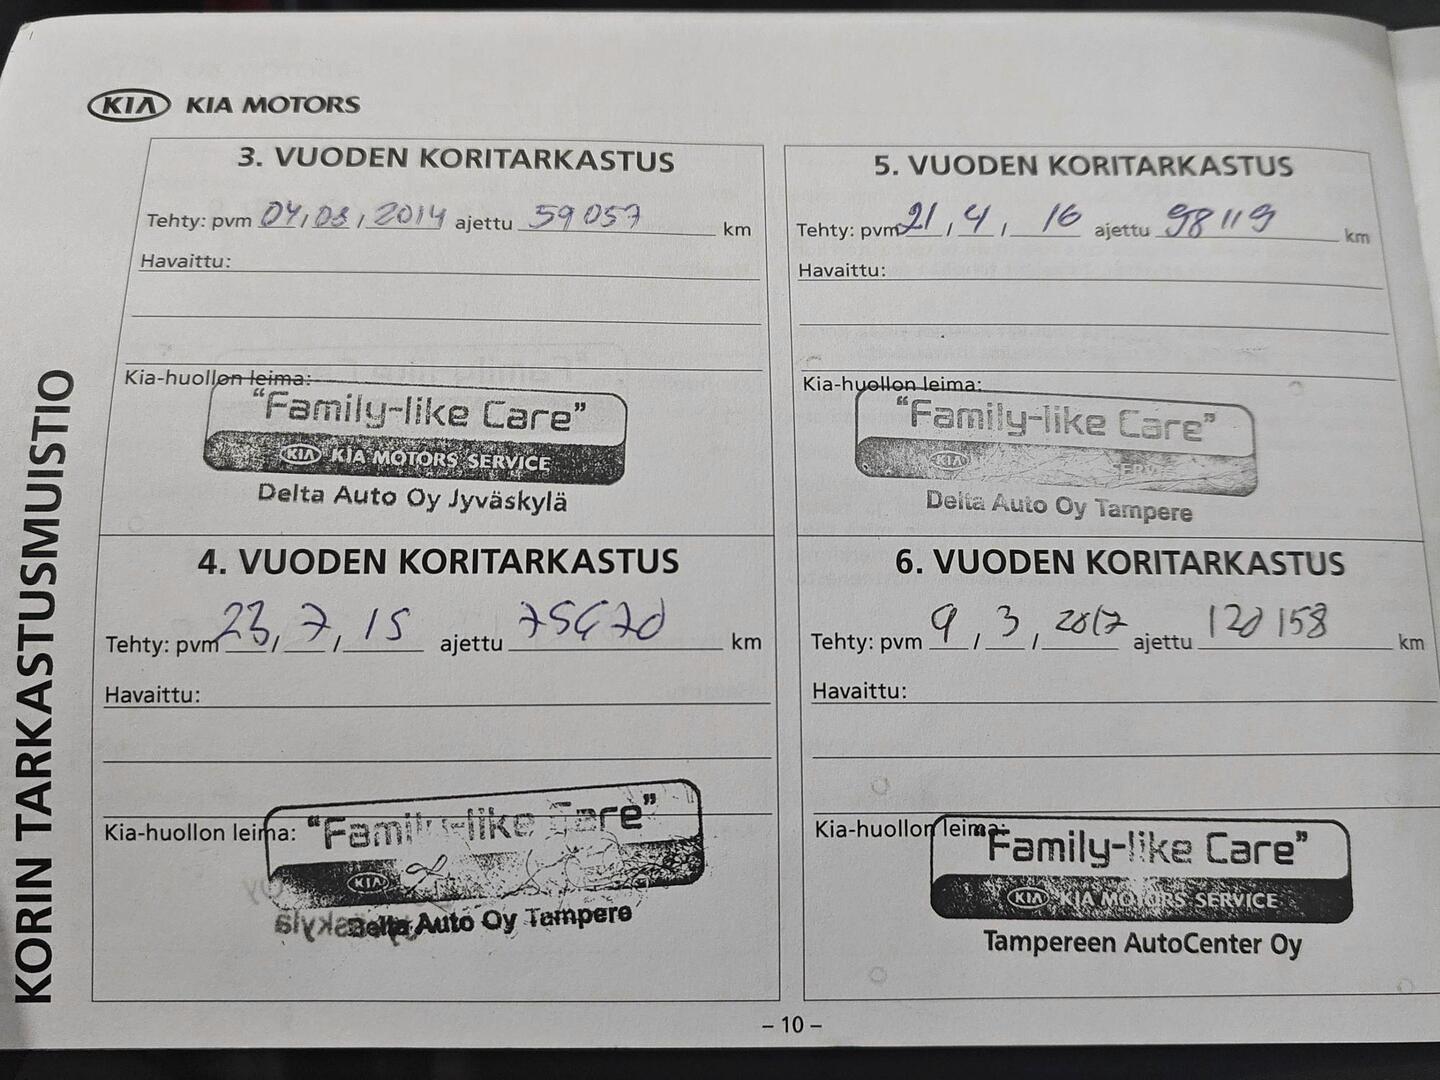 KIA KIA MOTORS
KORIN TARKASTUSMUISTIO
3. VUODEN KORITARKASTUS
Tehty: pvm 04/03/2014 ajettu 59057 km
Havaittu:
Kia-huollon leima:
"Family-like Care"
KIA KIA MOTORS SERVICE
Delta Auto Oy Jyväskylä
4. VUODEN KORITARKASTUS
Tehty: pvm 23/7/15 ajettu 75670 km
Havaittu:
Kia-huollon leima:
"Family-like Care"
KIA
Delta Auto Oy Tampere
5. VUODEN KORITARKASTUS
Tehty: pvm 21/4/16 ajettu 98119 km
Havaittu:
Kia-huollon leima:
"Family-like Care"
KIA SERV
Delta Auto Oy Tampere
6. VUODEN KORITARKASTUS
Tehty: pvm 9/3/2017 ajettu 120158 km
Havaittu:
Kia-huollon leima:
"Family-like Care"
KIA KIA MOTORS SERVICE
Tampereen AutoCenter Oy
– 10 –